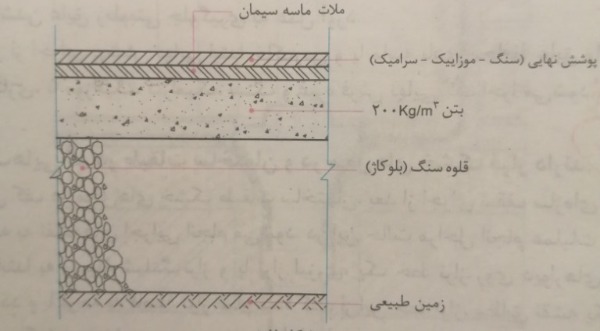 ملات ماسه سیمان
پوشش نهایی (سنگ - موزاییک - سرامیک)
بتن ۲۰۰Kg/m³
قلوه سنگ (بلوکاژ)
زمین طبیعی